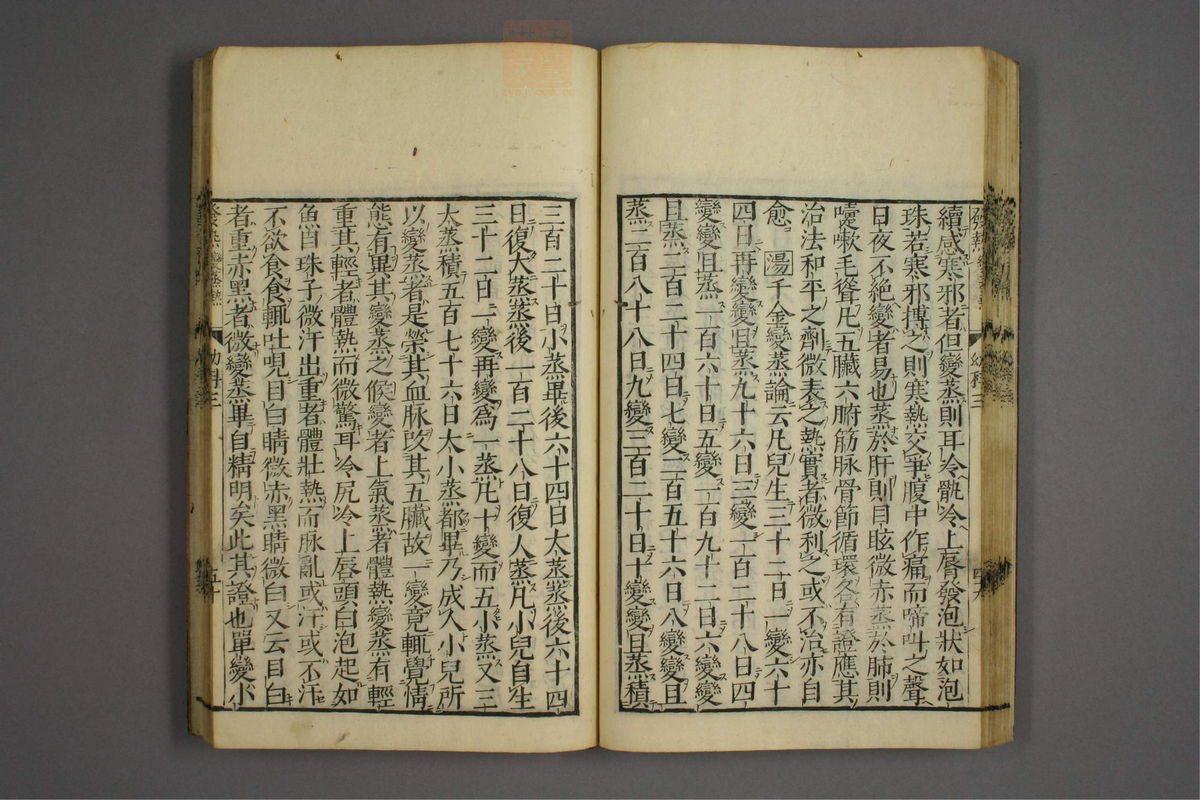 續感寒邪者但變蒸則耳冷骩冷上脣發泡狀如泡
珠若寒邪搏之則寒熱交爭腹中作痛而啼叫之聲
日夜不絶變者易也蒸於肝則目眩微赤蒸於肺則
嚏嗽毛聳凡五臟六腑筋脉骨節循環各有證應其
治法和平之劑微表之熱實者微利之或不治亦自
愈 湯 千金變蒸論云凡兒生三十二日一變六十
四日再變變且蒸九十六日三變一百二十八日四
變變且蒸一百六十日五變一百九十二日六變變
且蒸二百二十四日七變二百五十六日八變變且
蒸二百八十八日九變三百二十日十變變且蒸積
三百二十日小蒸畢後六十四日大蒸蒸後六十四
日復大蒸蒸後一百二十八日復大蒸凡小兒自生
三十二日一變再變爲一蒸凡十變而五小蒸又三
大蒸積五百七十六日大小蒸都畢乃成人小兒所
以變蒸者是榮其血脉改其五臟故一變竟輒覺情
態有異其變蒸之候變者上氣蒸者體熱變蒸有輕
重其輕者體熱而微驚耳冷尻冷上唇頭白泡起如
魚目珠子微汗出重者體壯熱而脉亂或汗或不汗
不欲食食輒吐哯目白睛微赤黑睛微白又云目白
者重赤黑者微變蒸畢自精明矣此其證也單變小
幼科三
五十